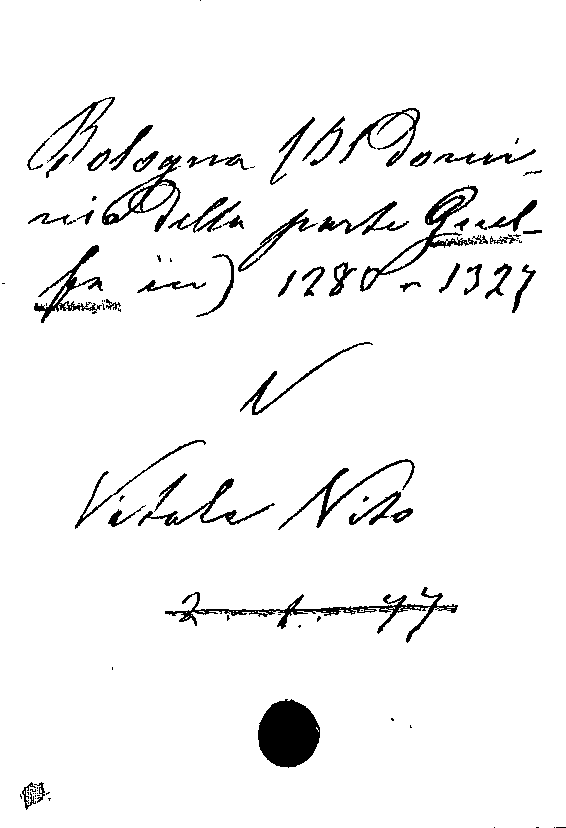 Bologna (Il Domi-
nio della parte Guel-
fa in) 1280-1327
V
Vitale Vito
2. 1. 77